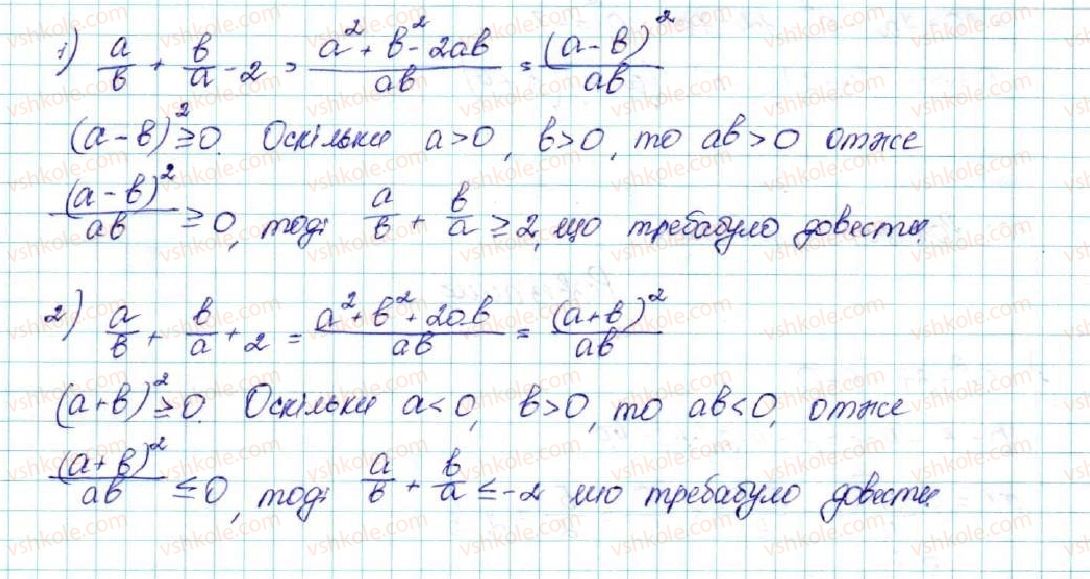 1) a/в + в/a - 2 = (a² + в² - 2aв)/aв = (a - в)²/aв
(a - в)² ≥ 0. Оскільки a > 0, в > 0, то aв > 0 отже
(a - в)²/aв ≥ 0, тоді a/в + в/a ≥ 2, що требабуло довести.
2) a/в + в/a + 2 = (a² + в² + 2aв)/aв = (a + в)²/aв
(a + в)² ≥ 0. Оскільки a < 0, в > 0, то aв < 0, отже
(a + в)²/aв ≤ 0, тоді a/в + в/a ≤ -2 що требабуло довести.
vshkole.com